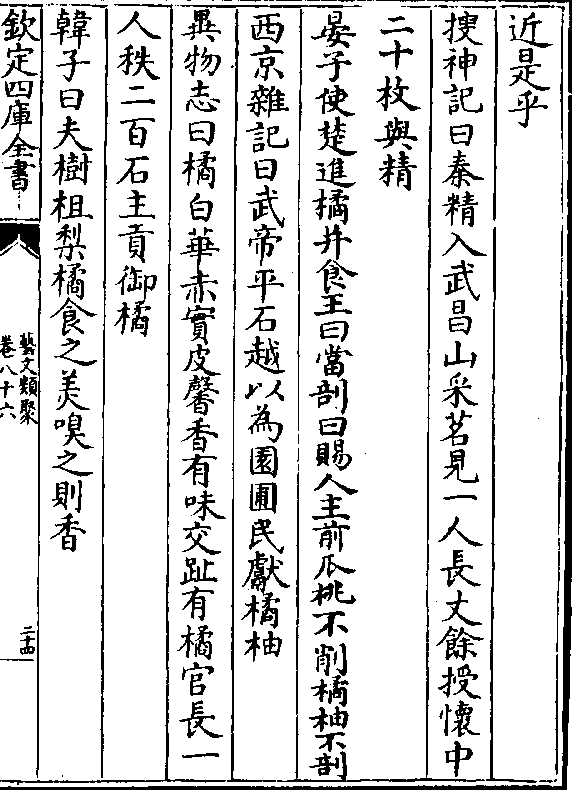 近是乎
搜神記曰秦精入武昌山采茗見一人長丈餘授懷中
二十枚與精
晏子使楚進橘并食王曰當剖曰賜人主前瓜桃不削橘柚不剖
西京雜記曰武帝平石越以為園圃民獻橘柚
異物志曰橘白華赤實皮馨香有味交趾有橘官長一
人秩二百石主貢御橘
韓子曰夫樹柤梨橘食之美嗅之則香
欽定四庫全書
藝文類聚
卷八十六
二十四